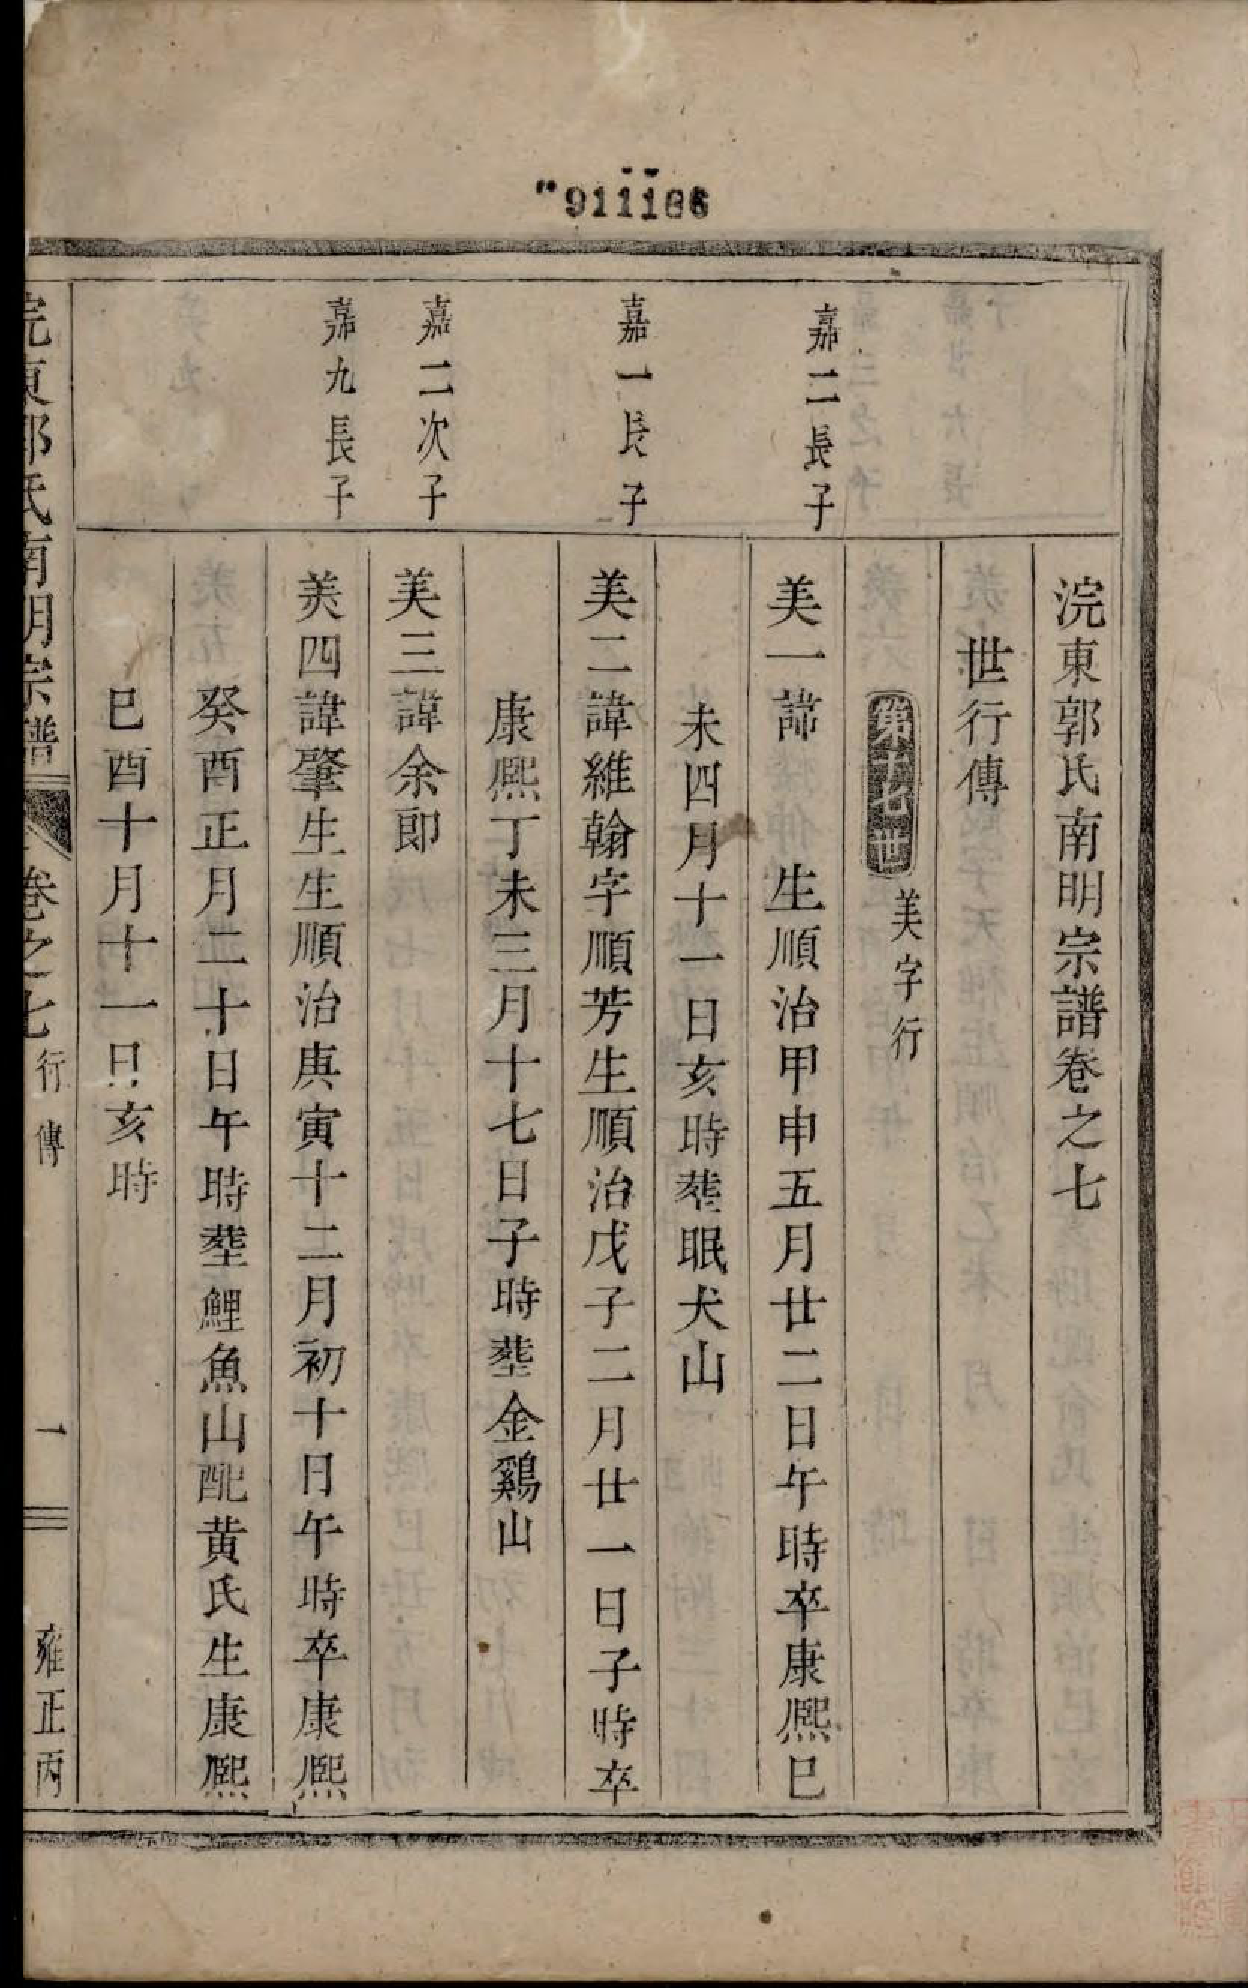 911186
浣東郭氏南明宗譜卷之七
世行傳
美字行
嘉二長子
美一諱　生順治甲申五月廿二日午時卒康熈巳
未四月十一日亥時塟眠犬山
嘉一長子
美二諱維翰字順芳生順治戊子二月廿一日子時卒
康熈丁未三月十七日子時塟金鷄山
嘉二次子
美三諱余郎
嘉九長子
美四諱肇生生順治庚寅十二月初十日午時卒康熈
癸酉正月二十日午時塟鯉魚山配黄氏生康熈
巳酉十月十一日亥時
浣東郭氏南明宗譜　卷之七　行傳　一　雍正丙